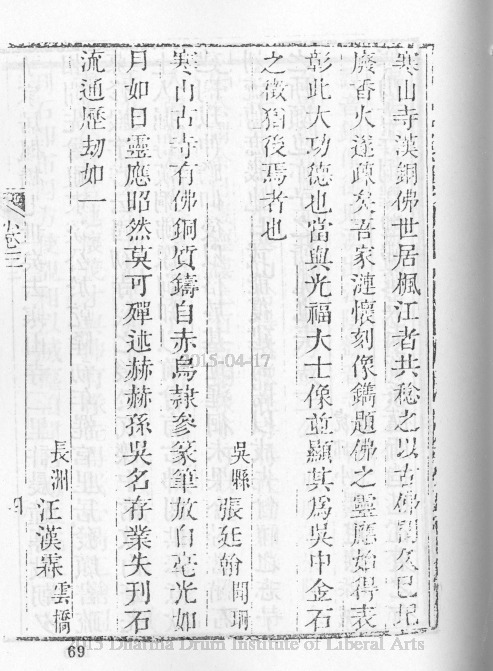 寒山寺漢銅佛世居楓江者共稔之以古佛閣久已圮
廢香火遂疎矣吾家漣懷刻像鐫題佛之靈應始得表
彰此大功德也當與光福大士像並顯其為吳中金石
之徵猶後焉者也
吳縣 張廷翰
寒山古寺有佛銅質鑄自赤烏隸參篆筆放白毫光如
月如日靈應昭然莫可殫述赫赫孫吳名存業失刊石
流通歷劫如一
長洲 江漢霖 雲橋
卷三
四
69
2015-04-17
2015 Dharma Drum Institute of Liberal Arts